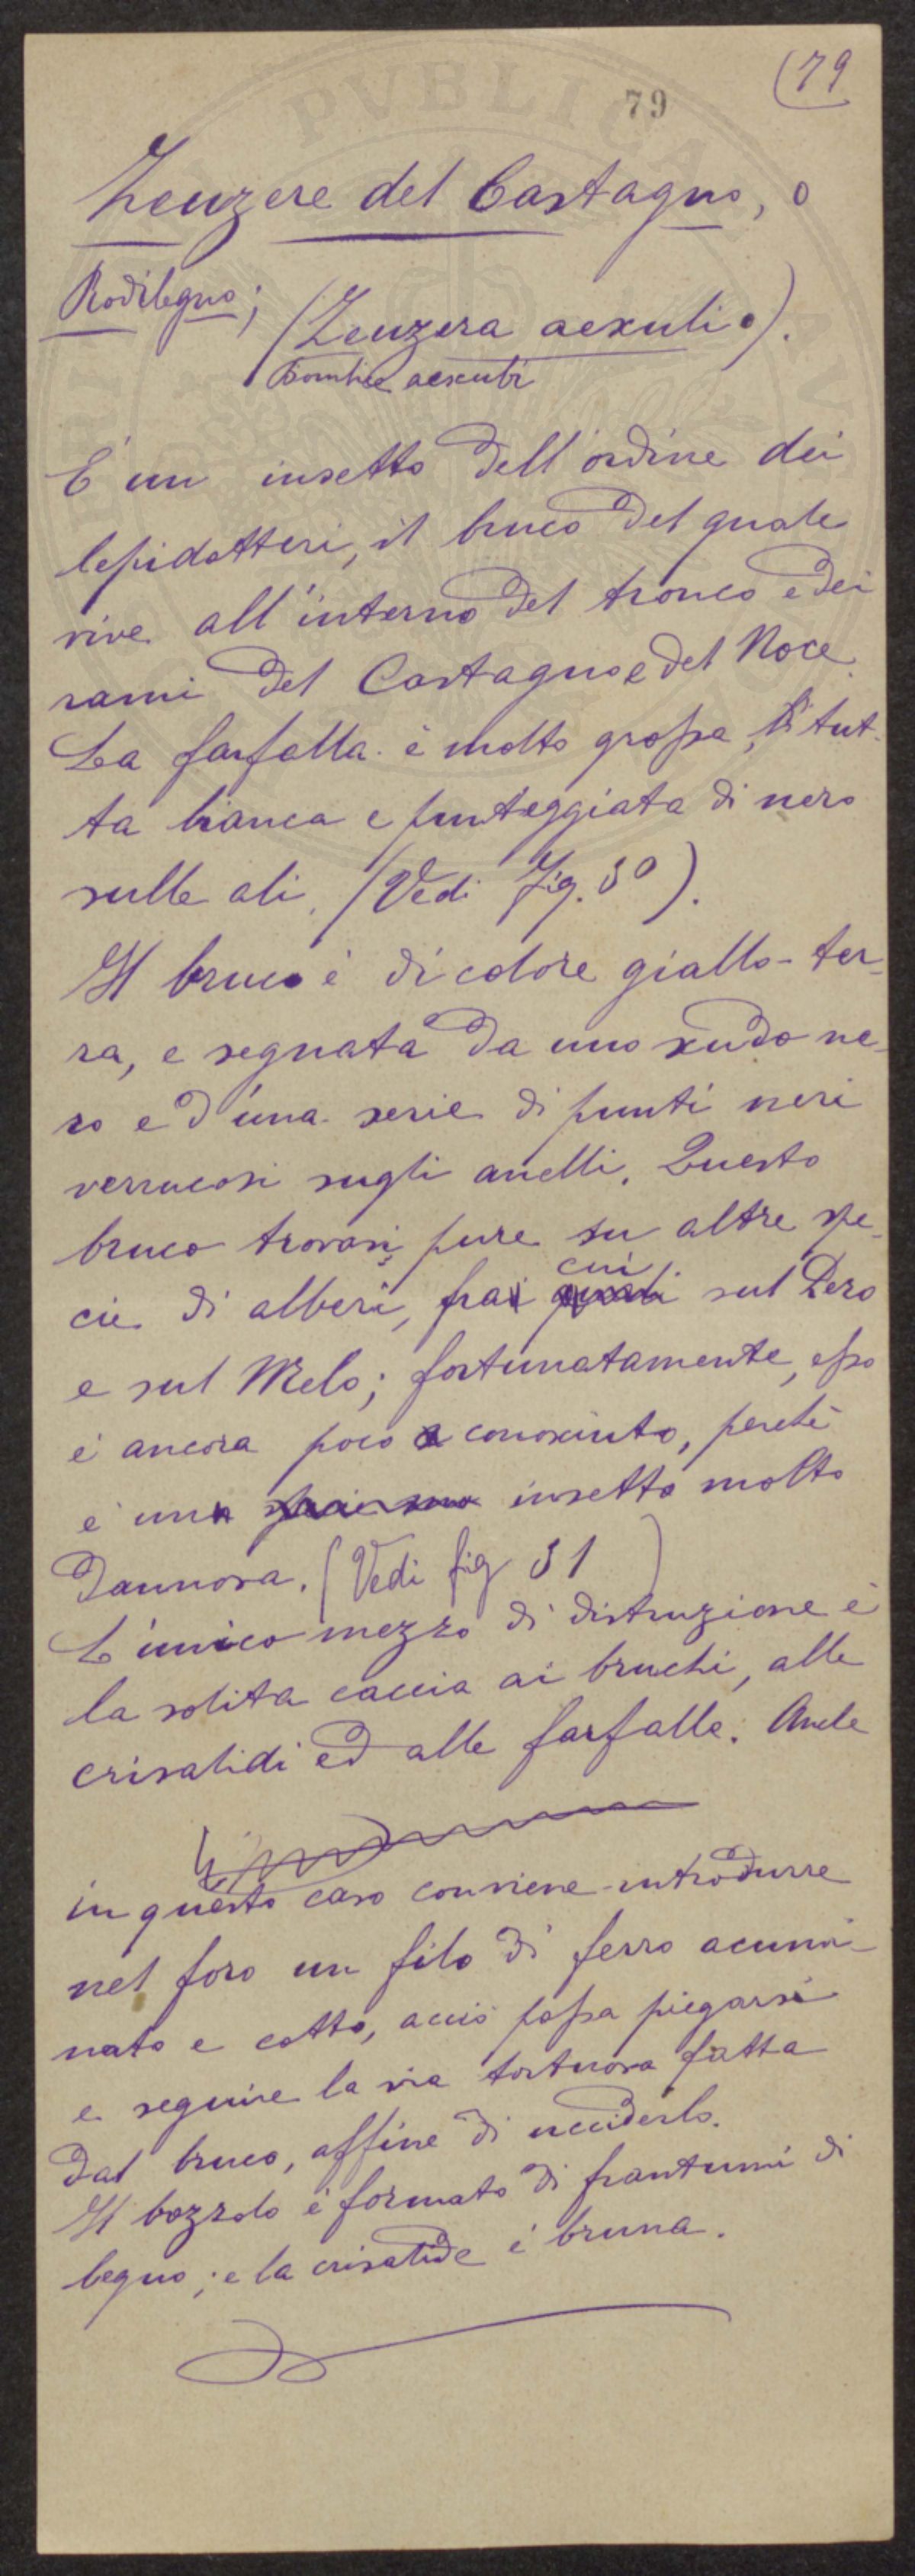 (79
79
Zeuzere del Castagno, o
Rodilegno; (Zeuzera aexuli).
Bombice aesculi
È un insetto dell'ordine dei
lepidotteri, il bruco del quale
vive all'interno del tronco e dei
rami del Castagno e del Noce.
La farfalla è molto grossa, tut-
ta bianca e punteggiata di nero
sulle ali. (Vedi Fig. 50).
Il bruco è di colore giallo-ter-
ra, e segnata da uno scudo ne-
ro e d'una serie di punti neri
verrucosi sugli anelli. Questo
bruco trovasi pure su altre spe-
cie di alberi, fra cui sul Pero
e sul Melo; fortunatamente, esso
è ancora poco conosciuto, perchè
è un insetto molto
dannosa. (Vedi fig 51)
L'unico mezzo di distruzione è
la solita caccia ai bruchi, alle
crisalidi ed alle farfalle. Anche
in questo caso conviene introdurre
nel foro un filo di ferro acumi-
nato e cotto, acciò possa piegarsi
e seguire la via tortuosa fatta
dal bruco, affine di ucciderlo.
Il bozzolo è formato di frantumi di
legno; e la crisalide è bruna.